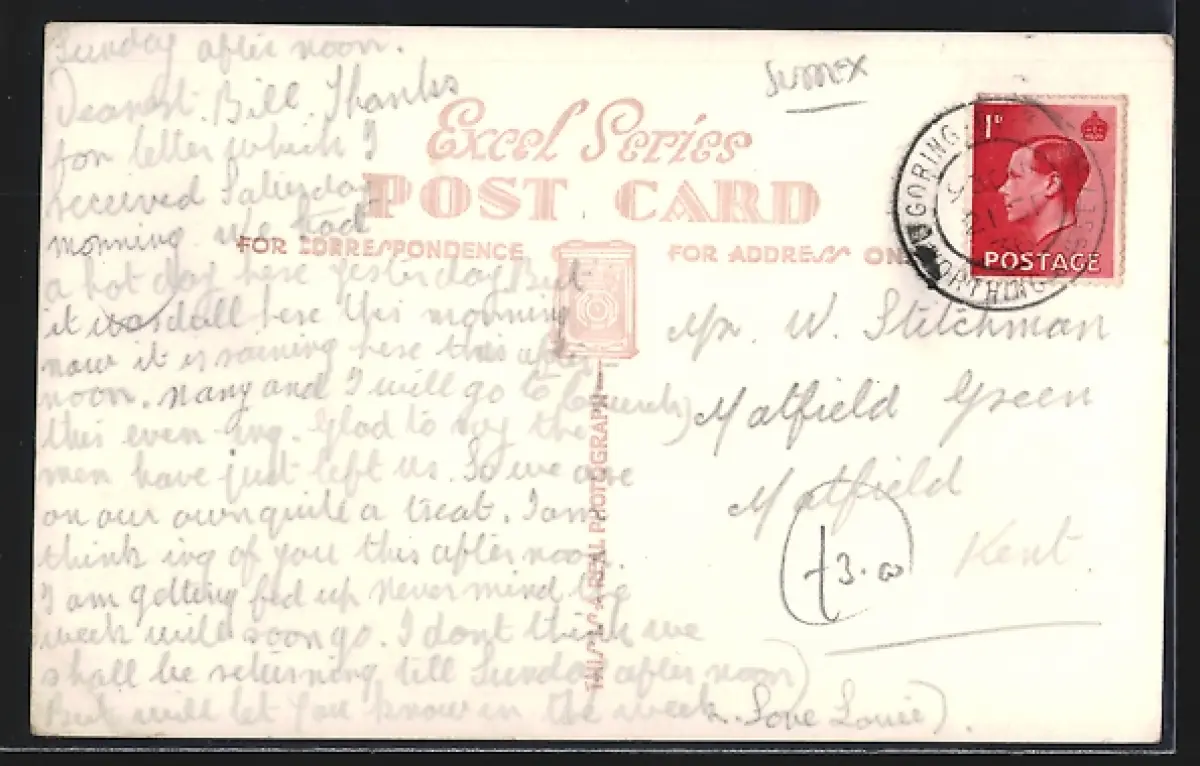 Sunday after noon.
Dearest Bill. Thanks
for letter which I
received Saturday
morning we had
a hot day here yesterday But
it was dull here this morning
now it is raining here this after
noon. nany and I will go to Church)
this even ing. Glad to say the
men have just left us. So we are
on our own quite a treat. I am
think ing of you this after noon.
I am getting fed up never mind the
week will soon go. I dont think we
shall be returning till Sunday after noon)
But will let you know in the week. Love Louie).
Excel Series
POST CARD
FOR CORRESPONDENCE
FOR ADDRESS ON
THIS IS A REAL PHOTOGRAPH
Sussex
1D
POSTAGE
GORING
WORTHING
Mr. W. Stitchman
Matfield Green
Matfield
Kent.
£3.00